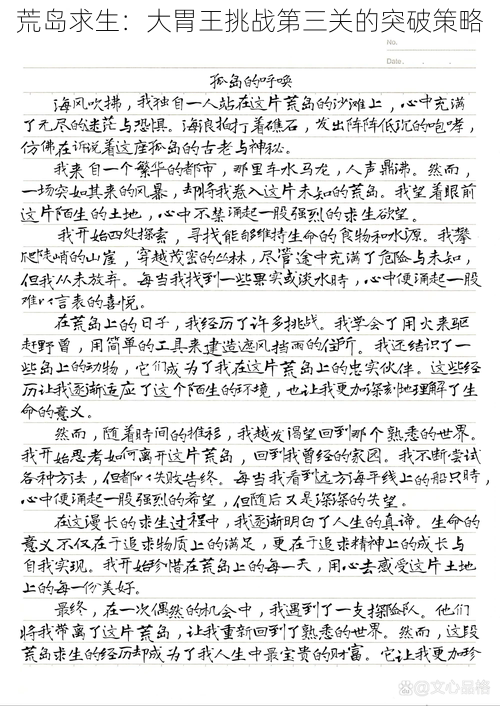 荒岛求生：大胃王挑战第三关的突破策略
No.
Date. . .
孤岛的呼唤
海风吹拂，我独自一人站在这片荒岛的沙滩上，心中充满
了无尽的迷茫与恐惧。海浪拍打着礁石，发出阵阵低沉的咆哮，
仿佛在诉说着这座孤岛的古老与神秘。
我来自一个繁华的都市，那里车水马龙，人声鼎沸。然而，
一场突如其来的风暴，却将我卷入这片未知的荒岛。我望着眼前
这片陌生的土地，心中不禁涌起一股强烈的求生欲望。
我开始四处探索，寻找能够维持生命的食物和水源。我攀
爬陡峭的山崖，穿越茂密的丛林，尽管途中充满了危险与未知，
但我从未放弃。每当我找到一些果实或淡水时，心中便涌起一股
难以言表的喜悦。
在荒岛上的日子，我经历了许多挑战。我学会了用火来驱
赶野兽，用简单的工具来建造遮风挡雨的住所。我还结识了一
些岛上的动物，它们成为了我在这片荒岛上的忠实伙伴。这些经
历让我逐渐适应了这个陌生的环境，也让我更加深刻地理解了生
命的意义。
然而，随着时间的推移，我越发渴望回到那个熟悉的世界。
我开始思考如何离开这片荒岛，回到我曾经的家园。我不断尝试
各种方法，但都以失败告终。每当我看到远方海平线上的船只时，
心中便涌起一股强烈的希望，但随后又是深深的失望。
在这漫长的求生过程中，我逐渐明白了人生的真谛。生命的
意义不仅在于追求物质上的满足，更在于追求精神上的成长与
自我实现。我开始珍惜在荒岛上的每一天，用心去感受这片土地
上的每一份美好。
最终，在一次偶然的机会中，我遇到了一支探险队。他们
将我带离了这片荒岛，让我重新回到了熟悉的世界。然而，这段
荒岛求生的经历却成为了我人生中最宝贵的财富。它让我更加珍
@文心品格